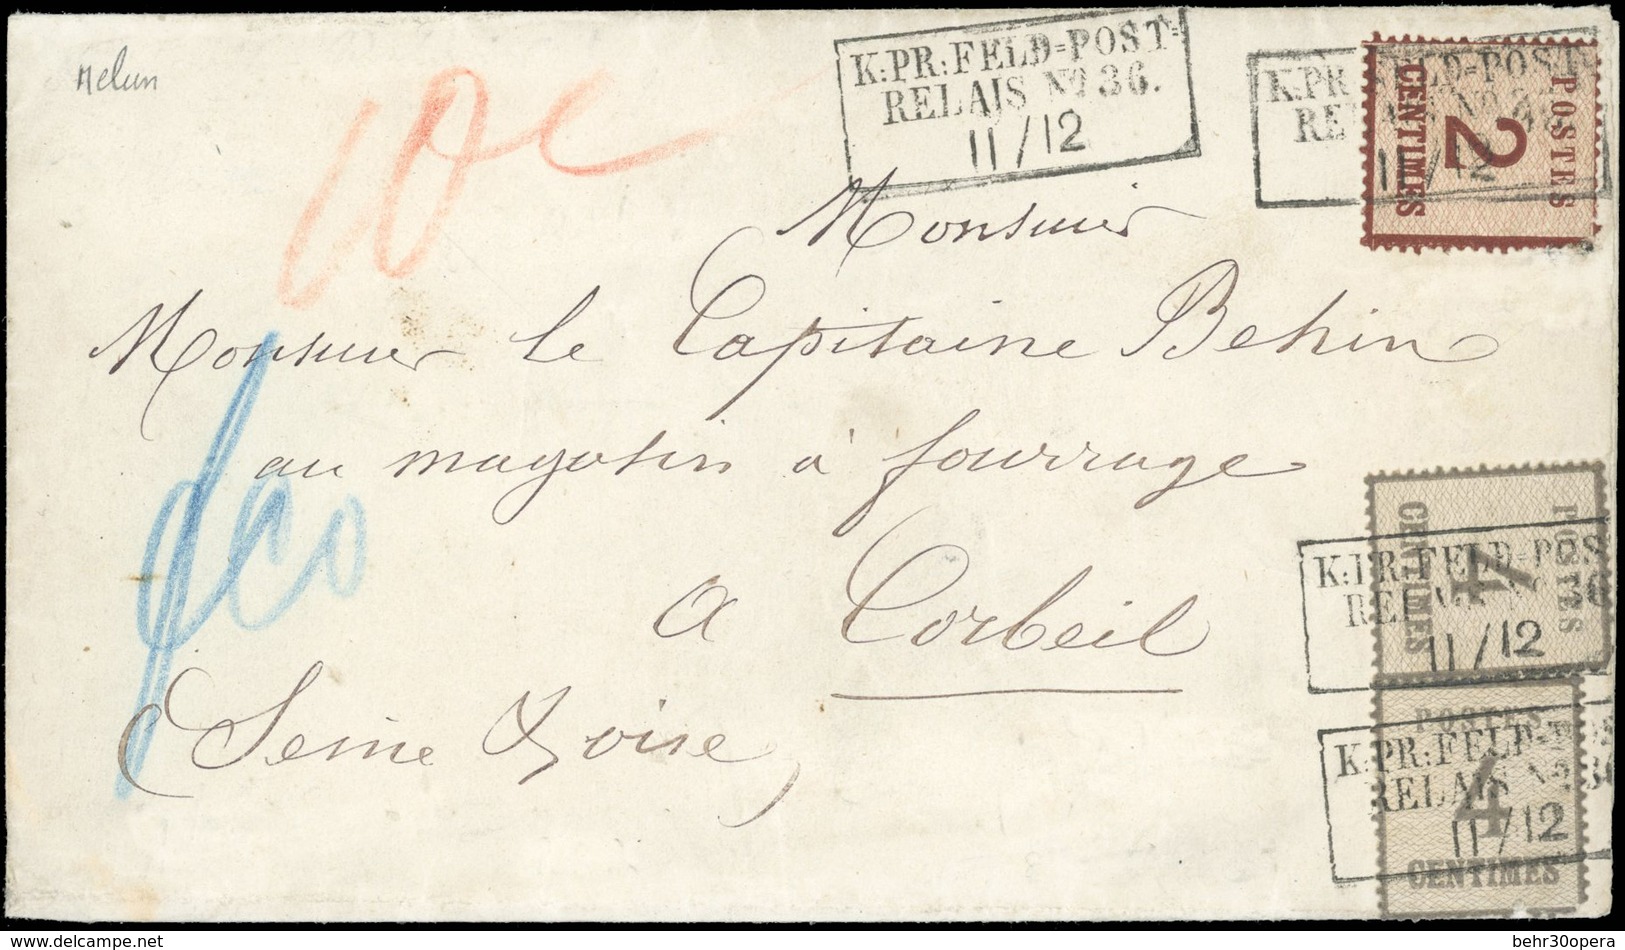 Melun
10 c
K:PR:FELD=POST=
RELAIS No 36.
11/12
K:PR:FELD=POST
RELAIS No 36
11/12
POSTES
2
CENTIMES
Monsieur
Monsieur le Capitaine Behin
au magasin à fourrage
a Corbeil
(Seine & oise)
POSTES
4
CENTIMES
K:PR:FELD=POS
RELAIS No 36
11/12
POSTES
4
CENTIMES
K:PR:FELD=P
RELAIS No 36
11/12
www.delcampe.net
behr30opera